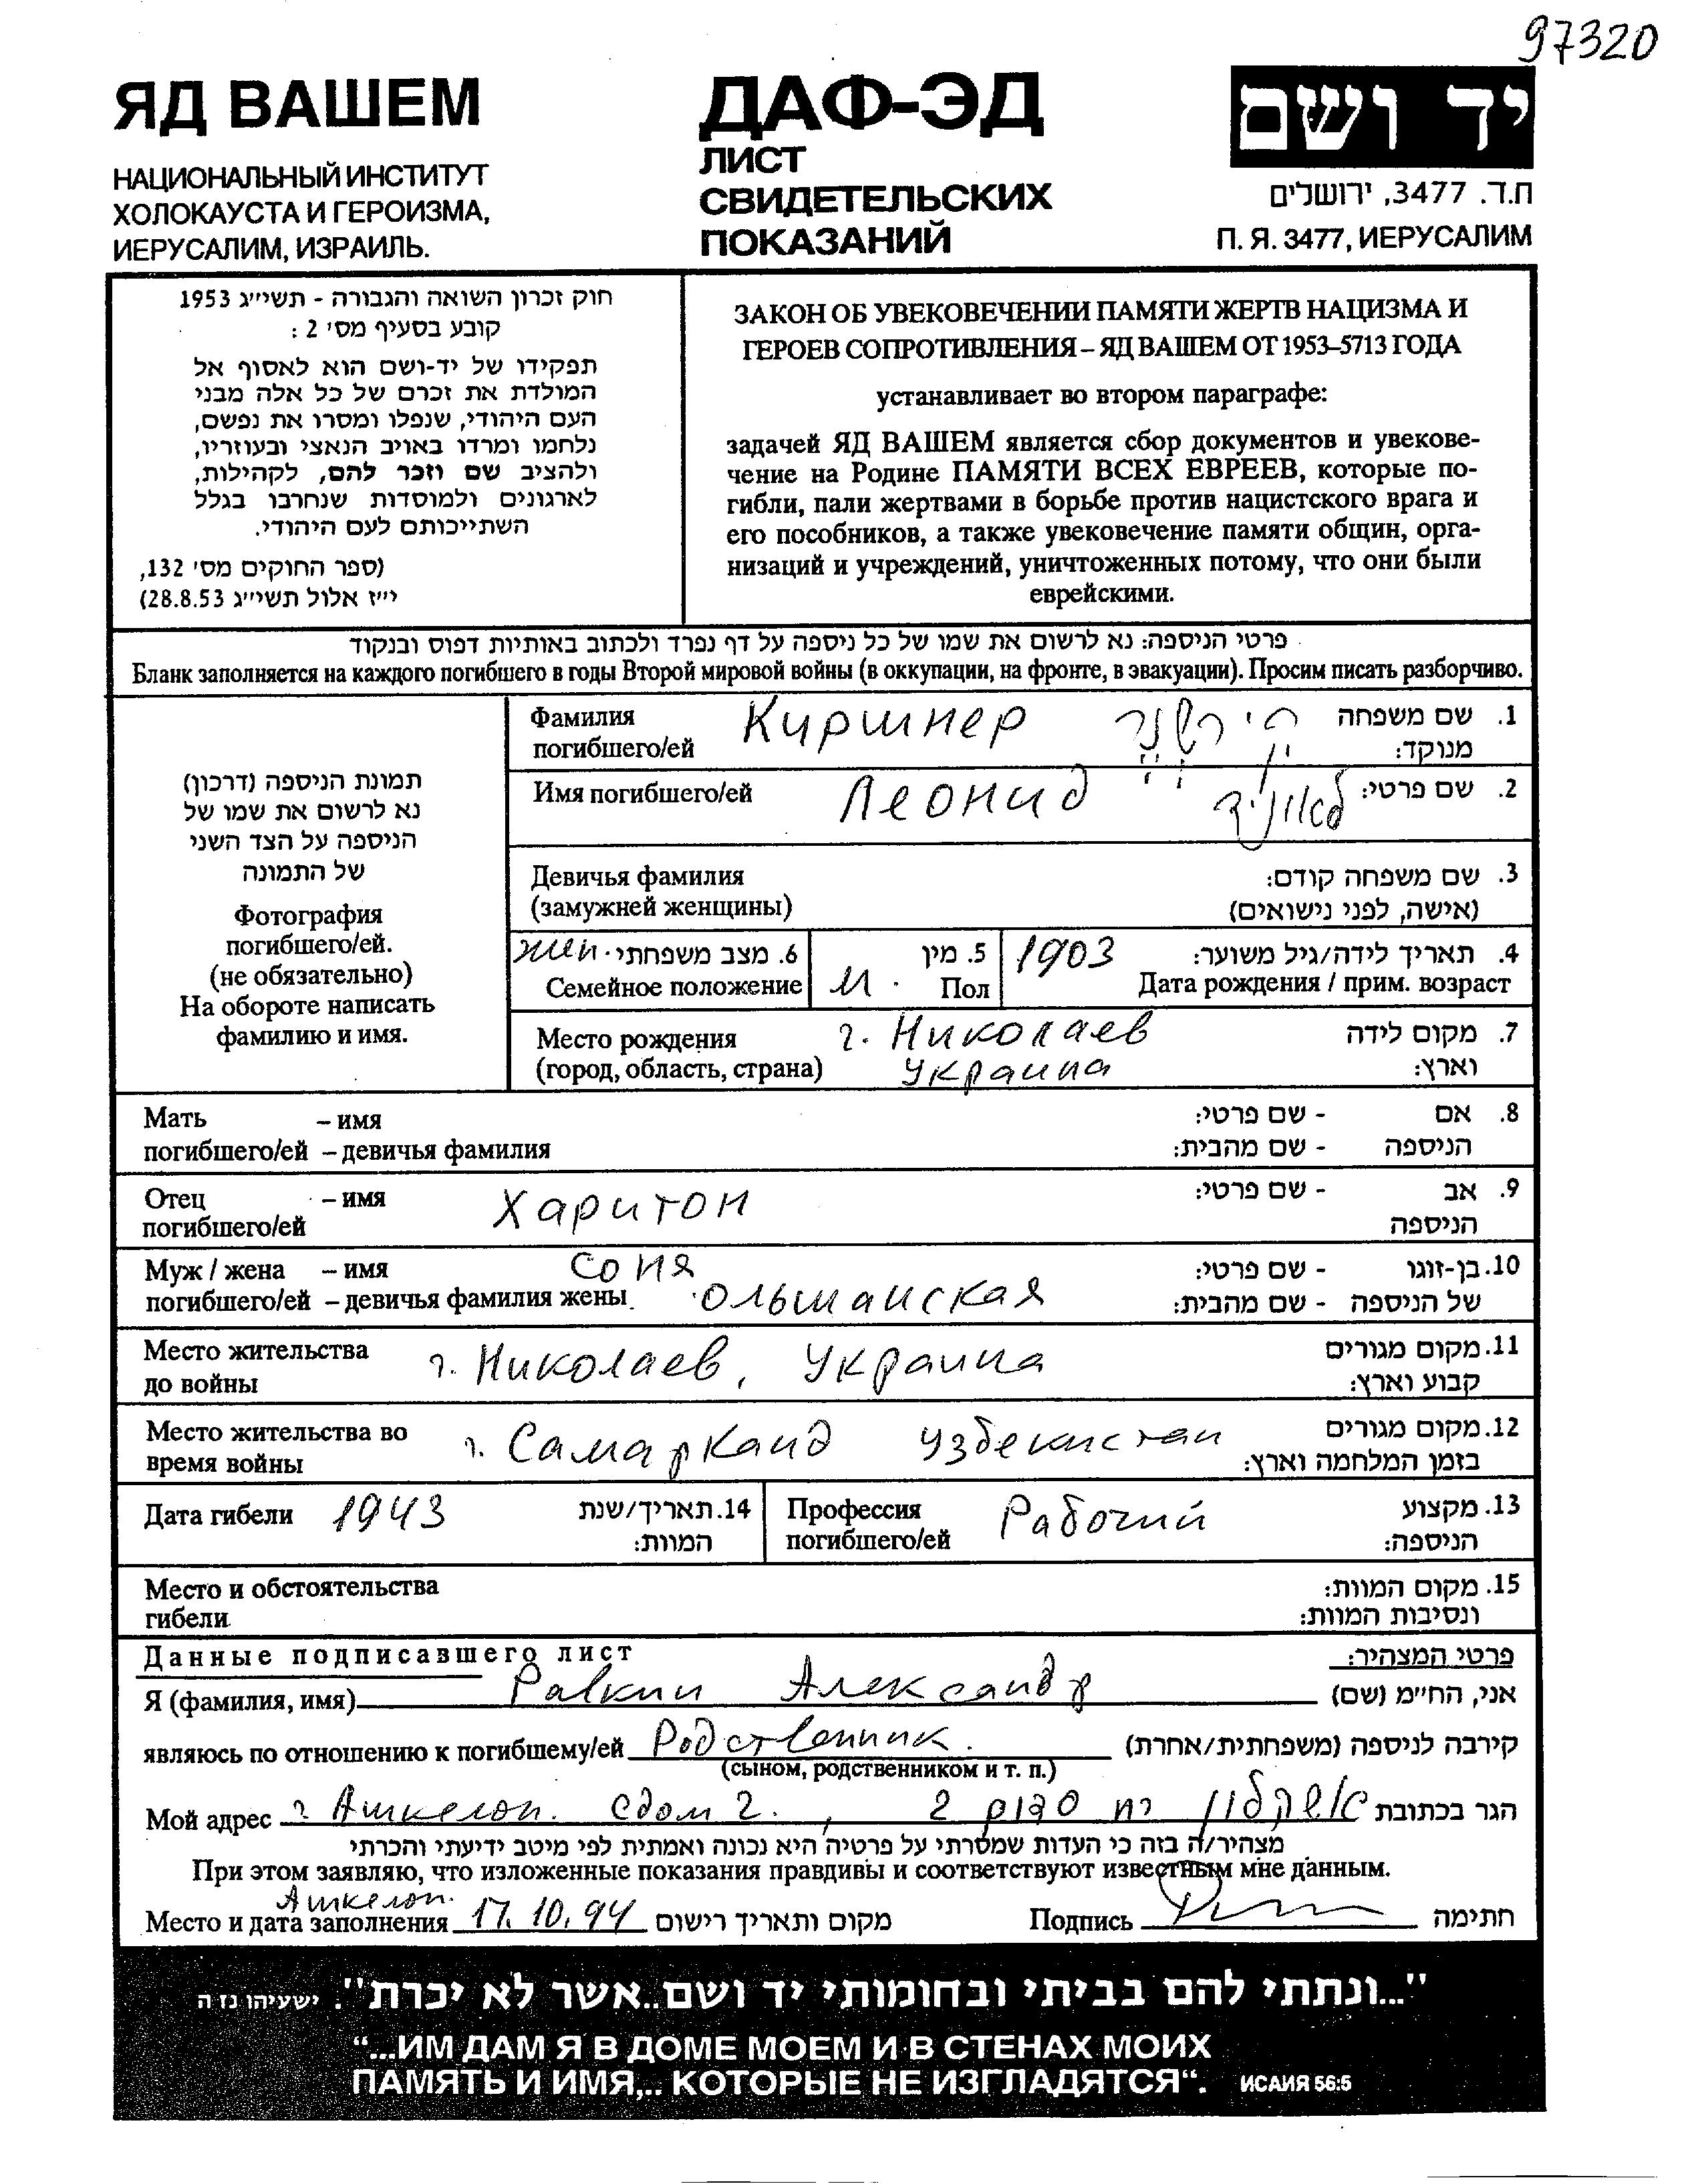 97320
ЯД ВАШЕМ
НАЦИОНАЛЬНЫЙ ИНСТИТУТ
ХОЛОКАУСТА И ГЕРОИЗМА,
ИЕРУСАЛИМ, ИЗРАИЛЬ.
ДАФ-ЭД
ЛИСТ
СВИДЕТЕЛЬСКИХ
ПОКАЗАНИЙ
יד ושם
ת.ד. 3477, ירושלים
П. Я. 3477, ИЕРУСАЛИМ
חוק זכרון השואה והגבורה - תשי״ג 1953
קובע בסעיף מס׳ 2 :
תפקידו של יד-ושם הוא לאסוף אל
המולדת את זכרם של כל אלה מבני
העם היהודי, שנפלו ומסרו את נפשם,
נלחמו ומרדו באויב הנאצי ובעוזריו,
ולהציב שם וזכר להם, לקהילות,
לארגונים ולמוסדות שנחרבו בגלל
השתייכותם לעם היהודי.
(ספר החוקים מס׳ 132,
י״ז אלול תשי״ג 28.8.53)
ЗАКОН ОБ УВЕКОВЕЧЕНИИ ПАМЯТИ ЖЕРТВ НАЦИЗМА И
ГЕРОЕВ СОПРОТИВЛЕНИЯ – ЯД ВАШЕМ ОТ 1953–5713 ГОДА
устанавливает во втором параграфе:
задачей ЯД ВАШЕМ является сбор документов и увекове-
чение на Родине ПАМЯТИ ВСЕХ ЕВРЕЕВ, которые по-
гибли, пали жертвами в борьбе против нацистского врага и
его пособников, а также увековечение памяти общин, орга-
низаций и учреждений, уничтоженных потому, что они были
еврейскими.
פרטי הניספה: נא לרשום את שמו של כל ניספה על דף נפרד ולכתוב באותיות דפוס ובנקוד
Бланк заполняется на каждого погибшего в годы Второй мировой войны (в оккупации, на фронте, в эвакуации). Просим писать разборчиво.
תמונת הניספה (דרכון)
נא לרשום את שמו של
הניספה על הצד השני
של התמונה
Фотография
погибшего/ей.
(не обязательно)
На обороте написать
фамилию и имя.
Фамилия Киршнер קירשנר 1. שם משפחה
погибшего/ей מנוקד:
Имя погибшего/ей Леонид לאוניד 2. שם פרטי:
Девичья фамилия 3. שם משפחה קודם:
(замужней женщины) (אישה, לפני נישואים)
жен. 6. מצב משפחתי 5. מין 1903 4. תאריך לידה/גיל משוער:
Семейное положение М. Пол Дата рождения / прим. возраст
Место рождения г. Николаев 7. מקום לידה
(город, область, страна) Украина וארץ:
Мать – имя 8. אם - שם פרטי:
погибшего/ей – девичья фамилия הניספה - שם מהבית:
Отец – имя Харитон 9. אב - שם פרטי:
погибшего/ей הניספה
Муж / жена – имя Соня 10. בן-זוגו - שם פרטי:
погибшего/ей – девичья фамилия жены Ольшанская של הניספה - שם מהבית:
Место жительства г. Николаев, Украина 11. מקום מגורים
до войны קבוע וארץ:
Место жительства во г. Самарканд Узбекистан 12. מקום מגורים
время войны בזמן המלחמה וארץ:
Дата гибели 1943 14. תאריך/שנת
המוות:
Профессия Рабочий 13. מקצוע
погибшего/ей הניספה:
Место и обстоятельства 15. מקום המוות:
гибели ונסיבות המוות:
Данные подписавшего лист פרטי המצהיר:
Я (фамилия, имя) Равкин Александр אני, הח״מ (שם)
являюсь по отношению к погибшему/ей Родственник. קירבה לניספה (משפחתית/אחרת)
(сыном, родственником и т. п.)
Мой адрес г Ашкелон. Сдом 2. , אשקלון רח סדום 2 הגר בכתובת
מצהיר/ה בזה כי העדות שמסרתי על פרטיה היא נכונה ואמתית לפי מיטב ידיעתי והכרתי
При этом заявляю, что изложенные показания правдивы и соответствуют известным мне данным.
Ашкелон.
Место и дата заполнения 17.10.94 מקום ותאריך רישום Подпись חתימה
"...ונתתי להם בביתי ובחומותי יד ושם..אשר לא יכרת". ישעיהו נו ה
“...ИМ ДАМ Я В ДОМЕ МОЕМ И В СТЕНАХ МОИХ
ПАМЯТЬ И ИМЯ,.. КОТОРЫЕ НЕ ИЗГЛАДЯТСЯ“. ИСАИЯ 56:5